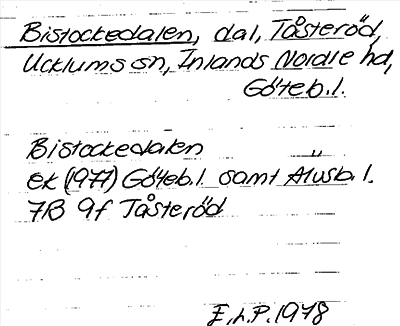 Bistockedalen, dal, Tåsteröd,
Ucklums sn, Inlands Nordre hd,
Göteb.l.
Bistockedalen
ek (1977) Göteb.l. samt Älvsb.l.
7B 9f Tåsteröd
E.h.P. 1978